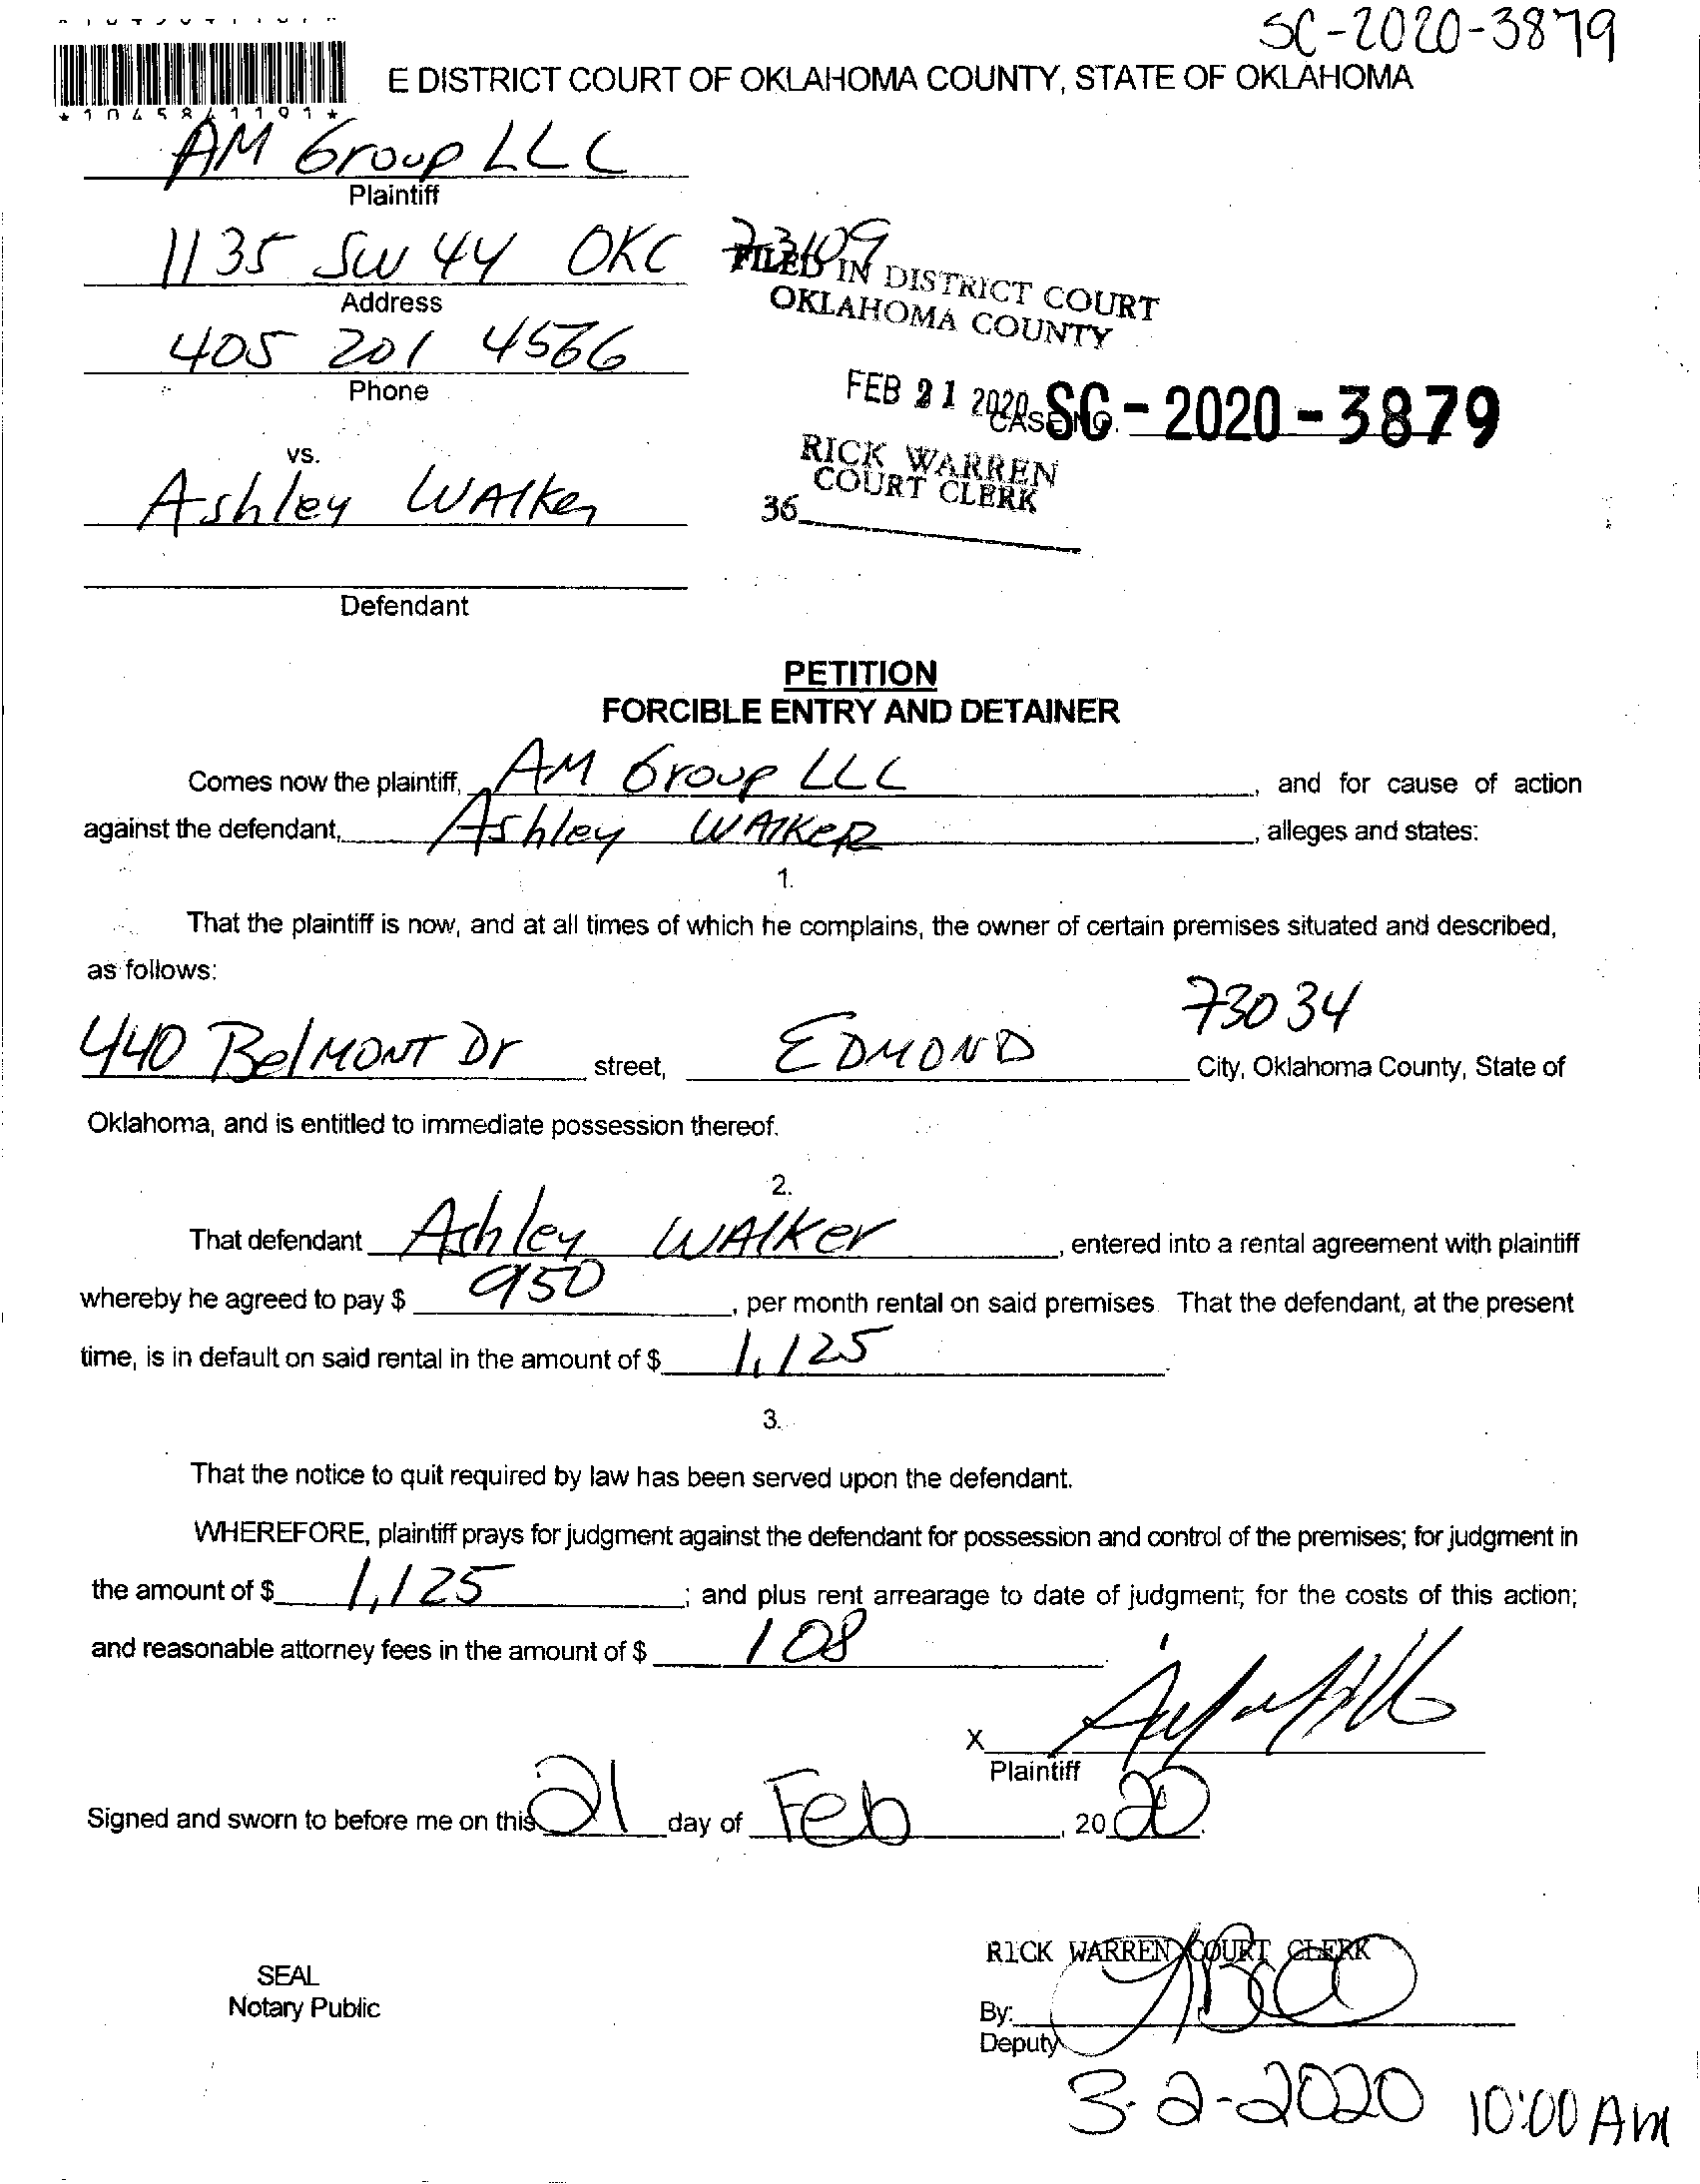 SC-2020-3879
E DISTRICT COURT OF OKLAHOMA COUNTY, STATE OF OKLAHOMA
*1045841191*
AM Group LLC
Plaintiff
1135 SW 44 OKC 73109
Address
FILED IN DISTRICT COURT
OKLAHOMA COUNTY
405 201 4566
Phone
FEB 21 2020
CASE NO. SC-2020-3879
RICK WARREN
COURT CLERK
36
vs.
Ashley Walker
Defendant
PETITION
FORCIBLE ENTRY AND DETAINER
Comes now the plaintiff, AM Group LLC, and for cause of action
against the defendant, Ashley WALKER, alleges and states:
1.
That the plaintiff is now, and at all times of which he complains, the owner of certain premises situated and described,
as follows:
73034
440 Belmont Dr street, EDMOND City, Oklahoma County, State of
Oklahoma, and is entitled to immediate possession thereof.
2.
That defendant Ashley Walker, entered into a rental agreement with plaintiff
whereby he agreed to pay $ 950, per month rental on said premises. That the defendant, at the present
time, is in default on said rental in the amount of $ 1,125.
3.
That the notice to quit required by law has been served upon the defendant.
WHEREFORE, plaintiff prays for judgment against the defendant for possession and control of the premises; for judgment in
the amount of $ 1,125; and plus rent arrearage to date of judgment; for the costs of this action;
and reasonable attorney fees in the amount of $ 108
X
Plaintiff
Signed and sworn to before me on this 21 day of Feb, 2020.
RICK WARREN COURT CLERK
SEAL
Notary Public
By:
Deputy
3-2-2020 10:00 AM